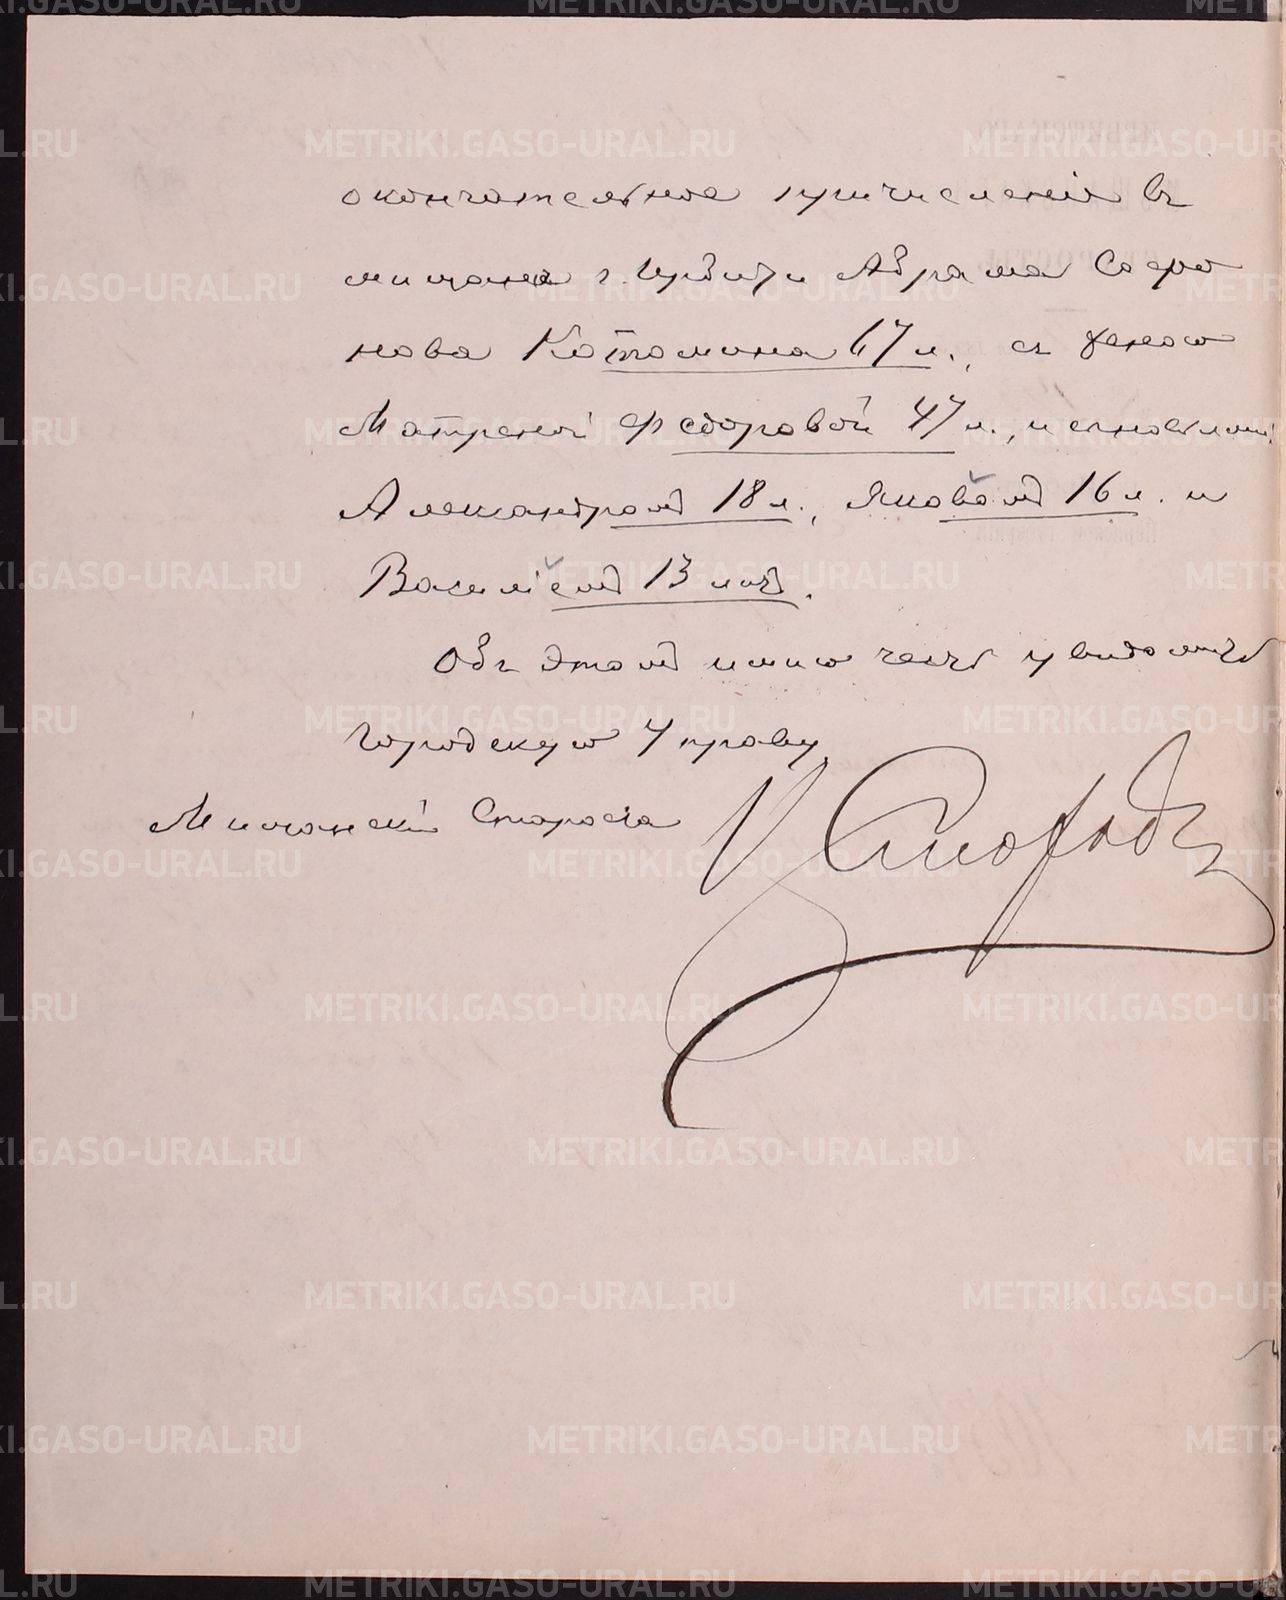 окончательное причисленіе въ
мѣщане г. Ирбити Абрама Софро
нова Котомина 67 л., съ женою
Матреной Ѳедоровой 47 л., и сыновьями:
Александромъ 18 л., Яковомъ 16 л. и
Василіемъ 13 лѣтъ.
Объ этомъ имѣю честь увѣдомить
Городскую Управу.
Мѣщанскій Староста
METRIKI.GASO-URAL.RU